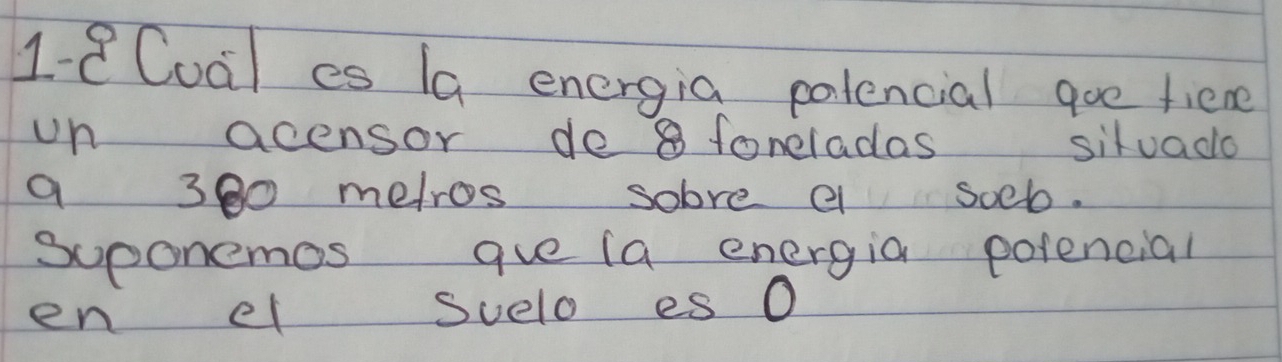 1-¿Cuál es la energia potencial que tiene
un acensor de 8 toneladas situado
a 380 metros sobre el suelo.
Suponemos que la energia potencial
en el suelo es 0